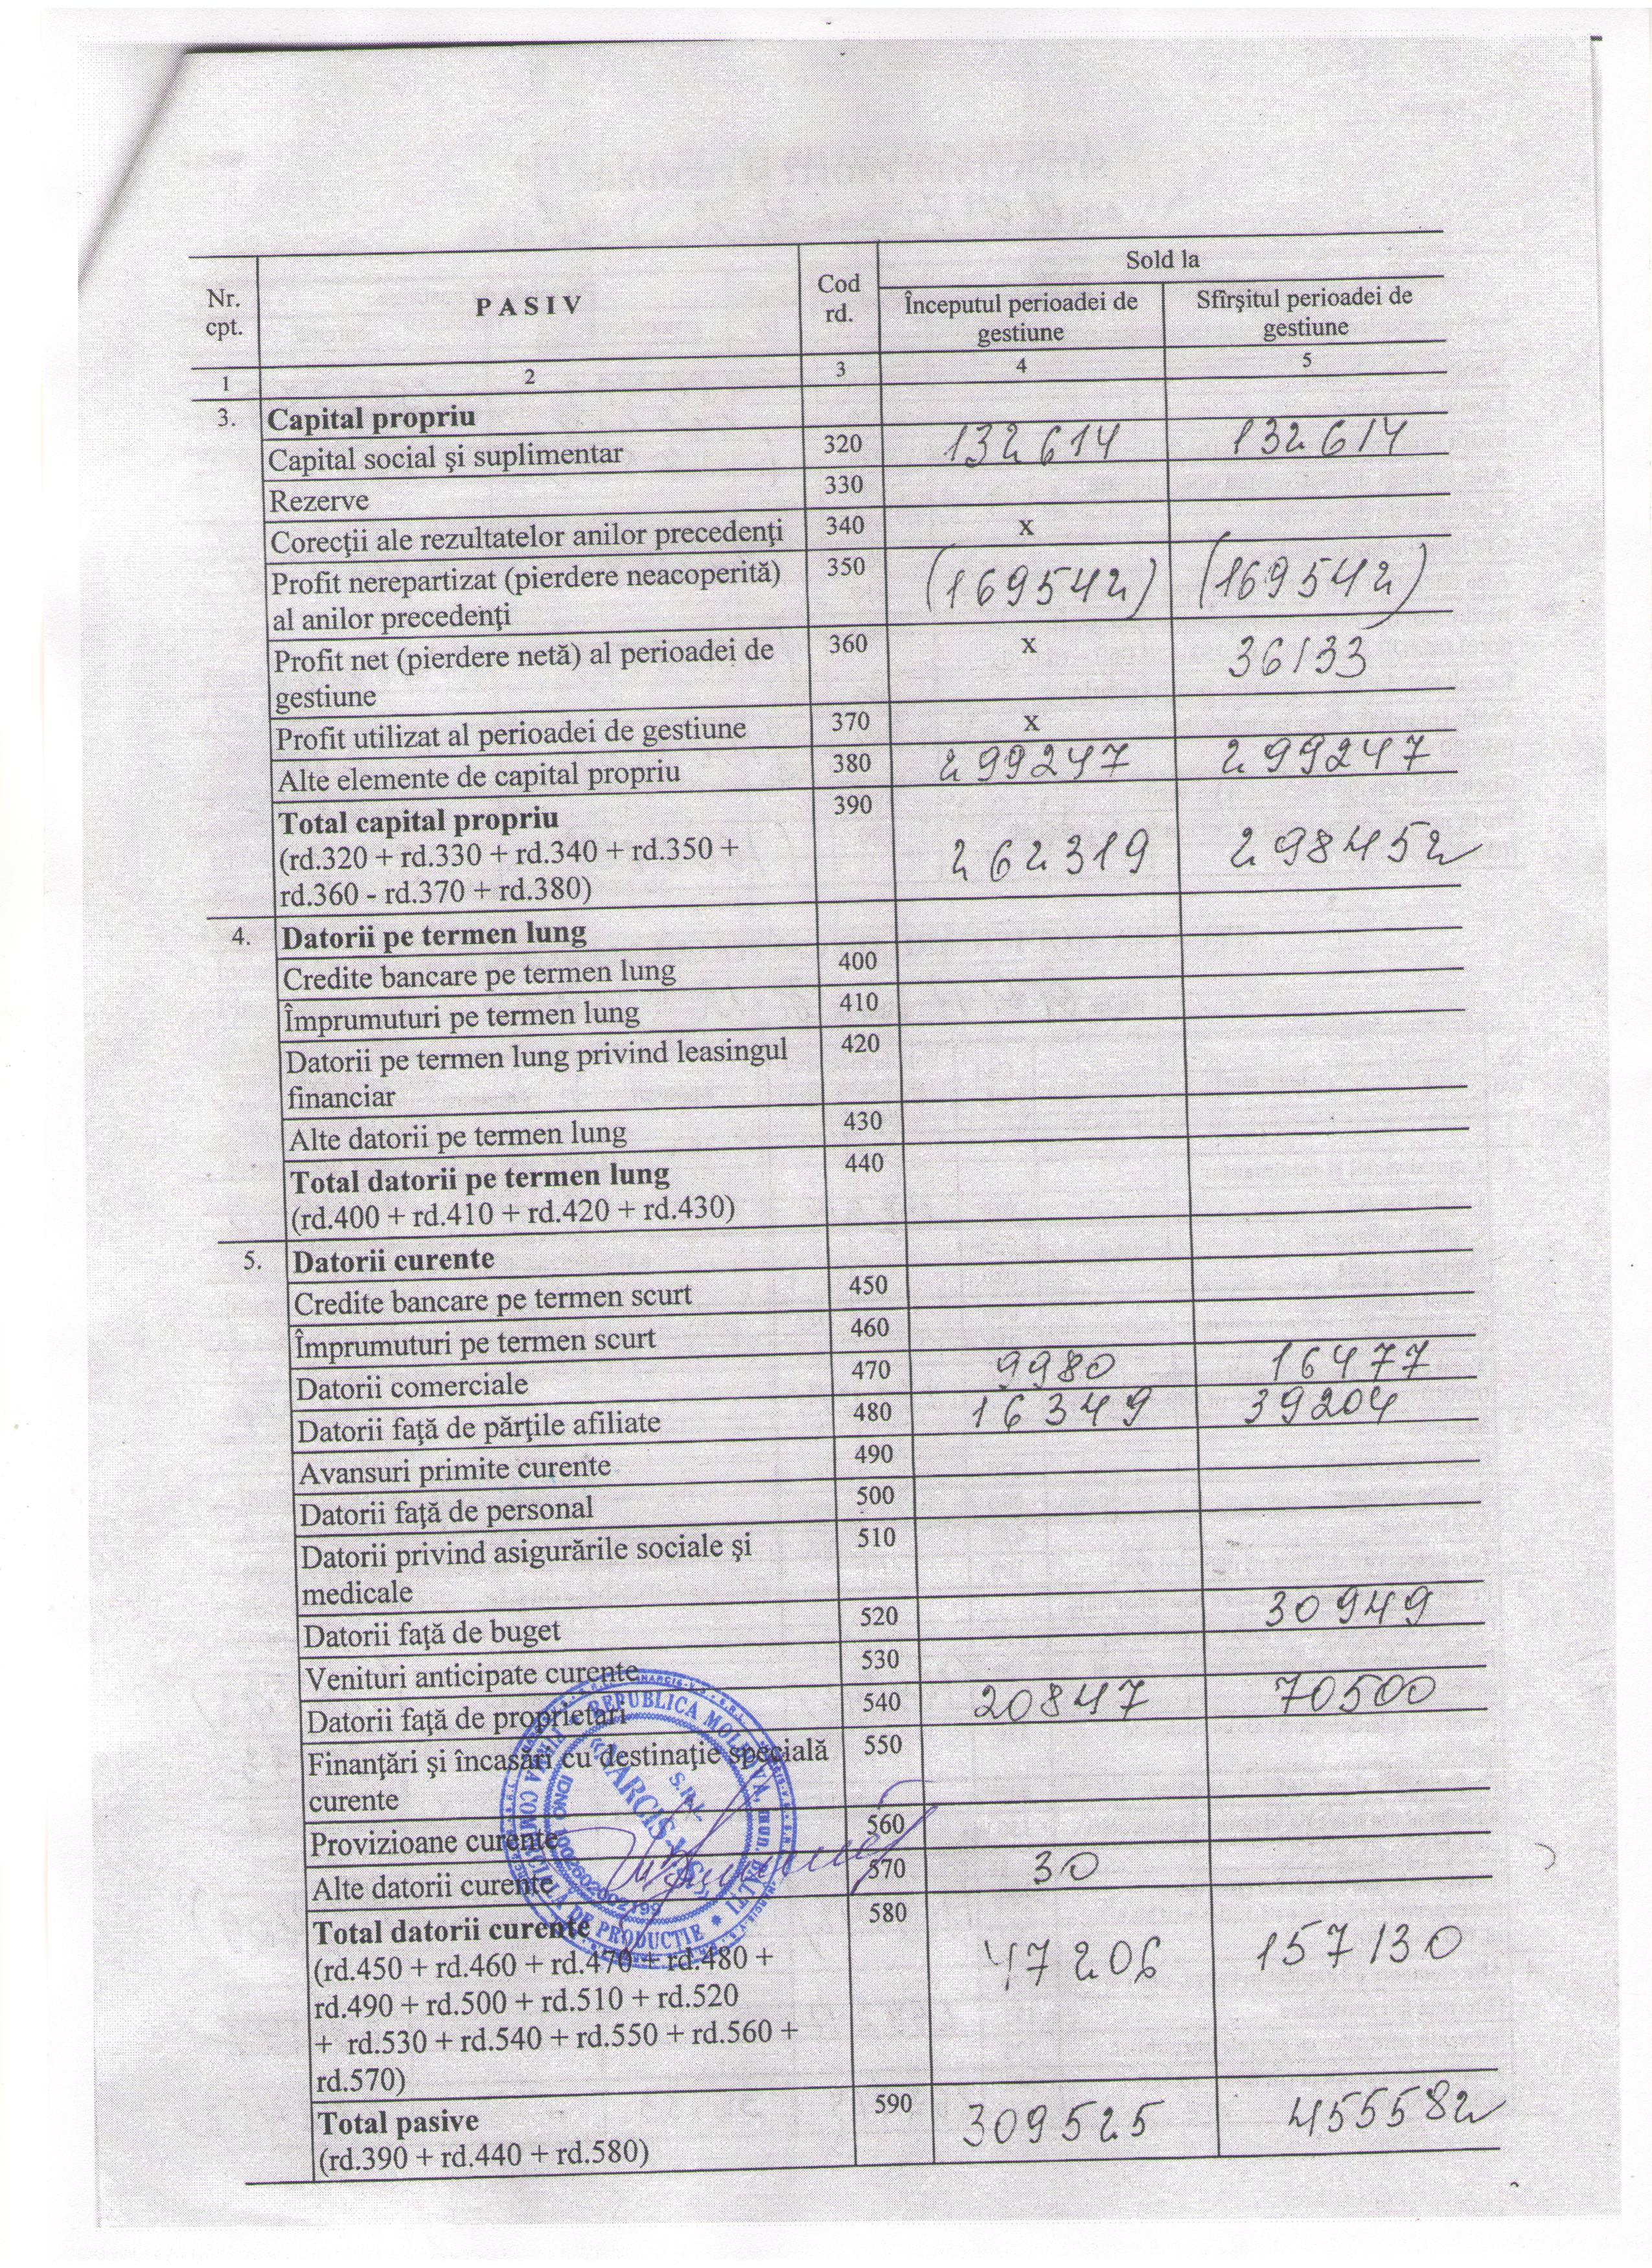 Nr. cpt.
PASIV
Cod rd.
Sold la
Începutul perioadei de gestiune
Sfîrşitul perioadei de gestiune
1 2 3 4 5
3. Capital propriu
Capital social şi suplimentar 320 132614 132614
Rezerve 330
Corecţii ale rezultatelor anilor precedenţi 340 x
Profit nerepartizat (pierdere neacoperită) 350 (169542) (169542)
al anilor precedenţi
Profit net (pierdere netă) al perioadei de 360 x 36133
gestiune
Profit utilizat al perioadei de gestiune 370 x
Alte elemente de capital propriu 380 299247 299247
Total capital propriu 390
(rd.320 + rd.330 + rd.340 + rd.350 + 262319 298452
rd.360 - rd.370 + rd.380)
4. Datorii pe termen lung
Credite bancare pe termen lung 400
Împrumuturi pe termen lung 410
Datorii pe termen lung privind leasingul 420
financiar
Alte datorii pe termen lung 430
Total datorii pe termen lung 440
(rd.400 + rd.410 + rd.420 + rd.430)
5. Datorii curente
Credite bancare pe termen scurt 450
Împrumuturi pe termen scurt 460
Datorii comerciale 470 9980 16477
Datorii faţă de părţile afiliate 480 16349 39204
Avansuri primite curente 490
Datorii faţă de personal 500
Datorii privind asigurările sociale şi 510
medicale
Datorii faţă de buget 520 30949
Venituri anticipate curente 530
Datorii faţă de proprietari 540 20847 70500
Finanţări şi încasări cu destinaţie specială 550
curente
Provizioane curente 560
Alte datorii curente 570 30
Total datorii curente 580
(rd.450 + rd.460 + rd.470 + rd.480 + 47206 157130
rd.490 + rd.500 + rd.510 + rd.520
+ rd.530 + rd.540 + rd.550 + rd.560 +
rd.570)
Total pasive 590 309525 455582
(rd.390 + rd.440 + rd.580)
REPUBLICA MOLDOVA, mun. BĂLŢI
DE PRODUCŢIE
S.R.L.
IDNO 1002602002199